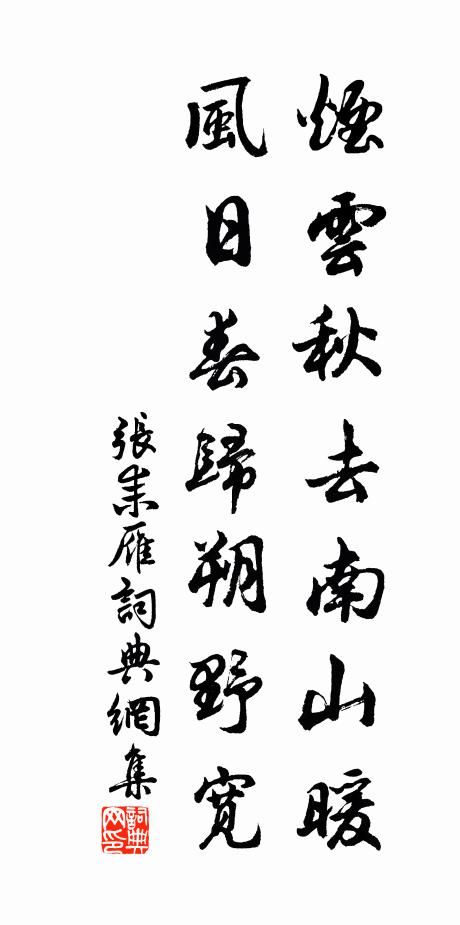 煙雲秋去南山暖
風日春歸朔野寬
張耒雁詞典網集
詞典網印